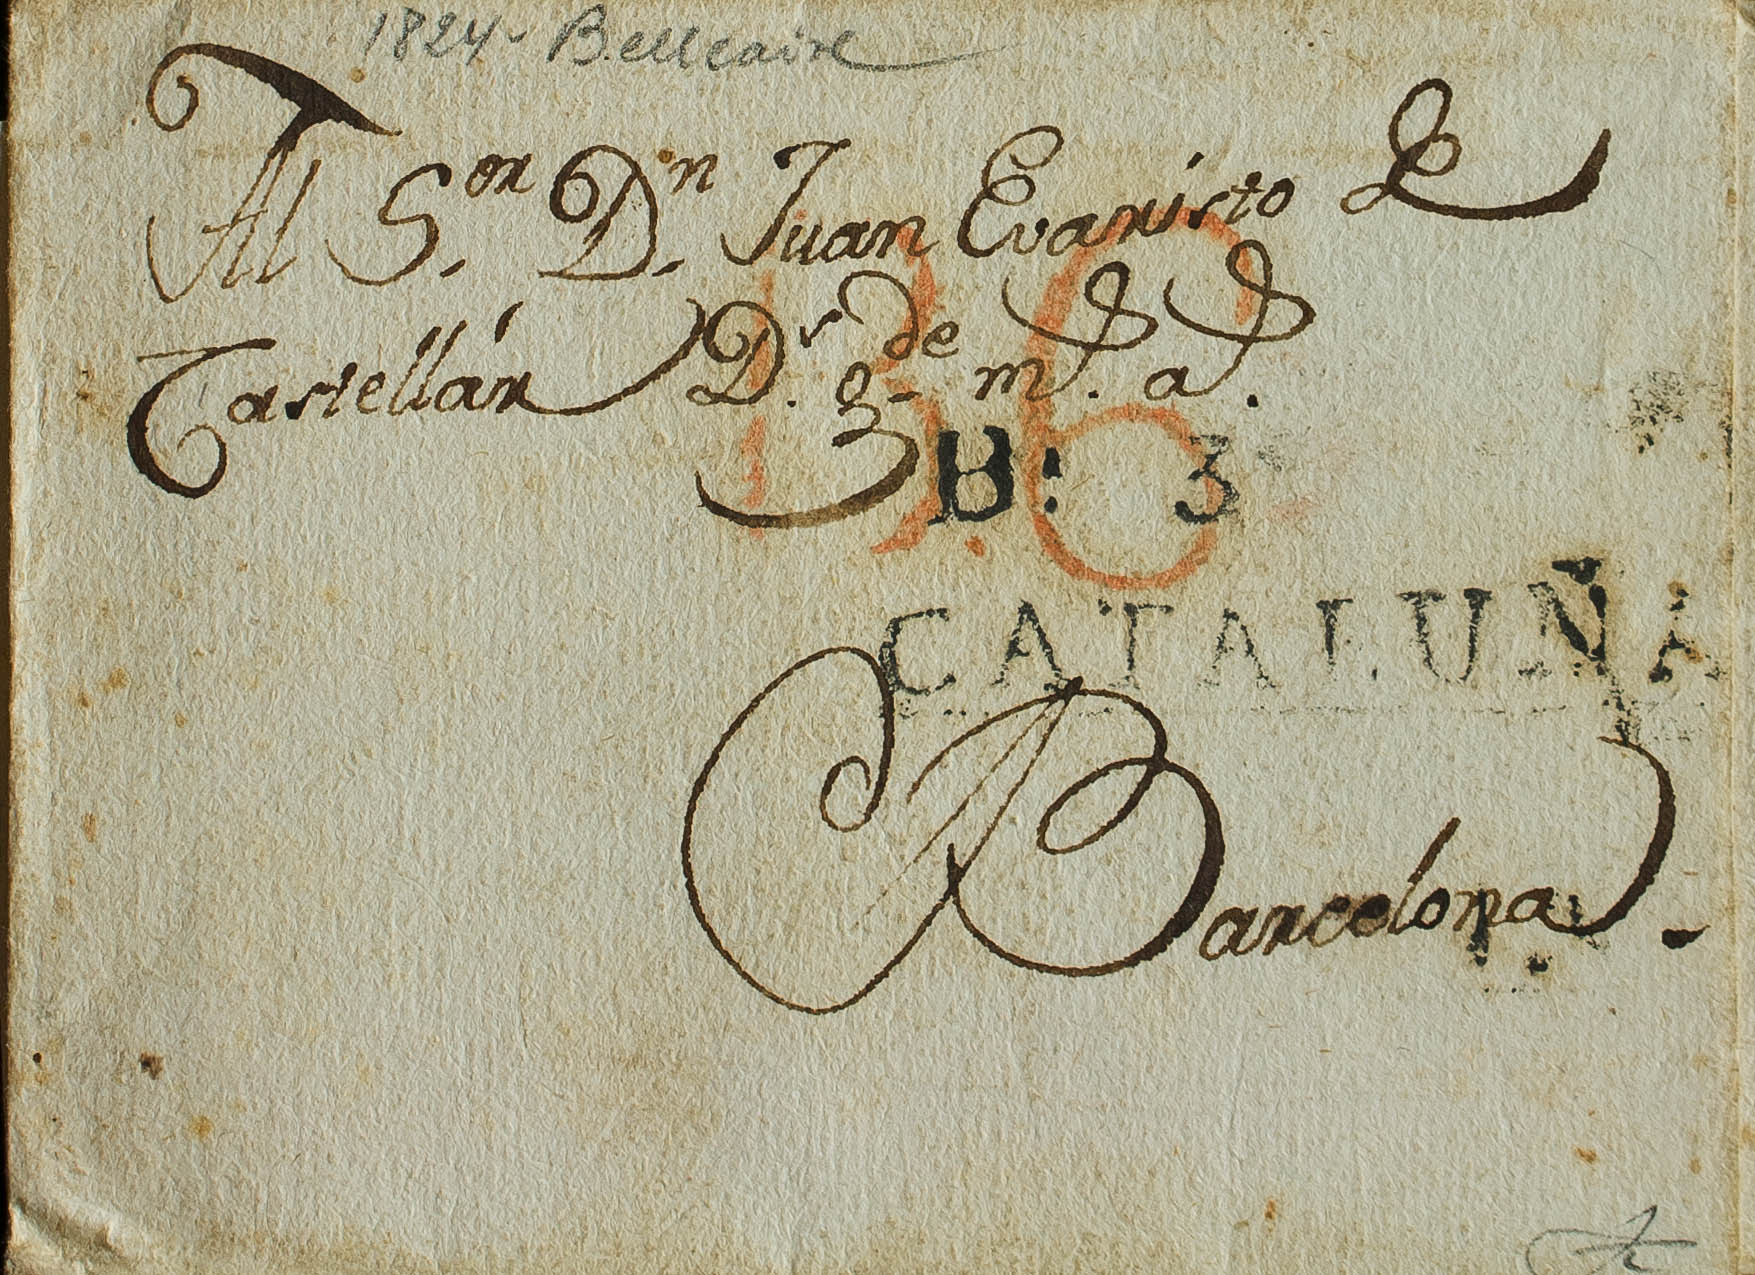 1824 - Bellcaire
Al S.or D.n Juan Evaristo de
Castellár D.s g.de m.s a.s
B: 3
CATALUÑA
Barcelona.